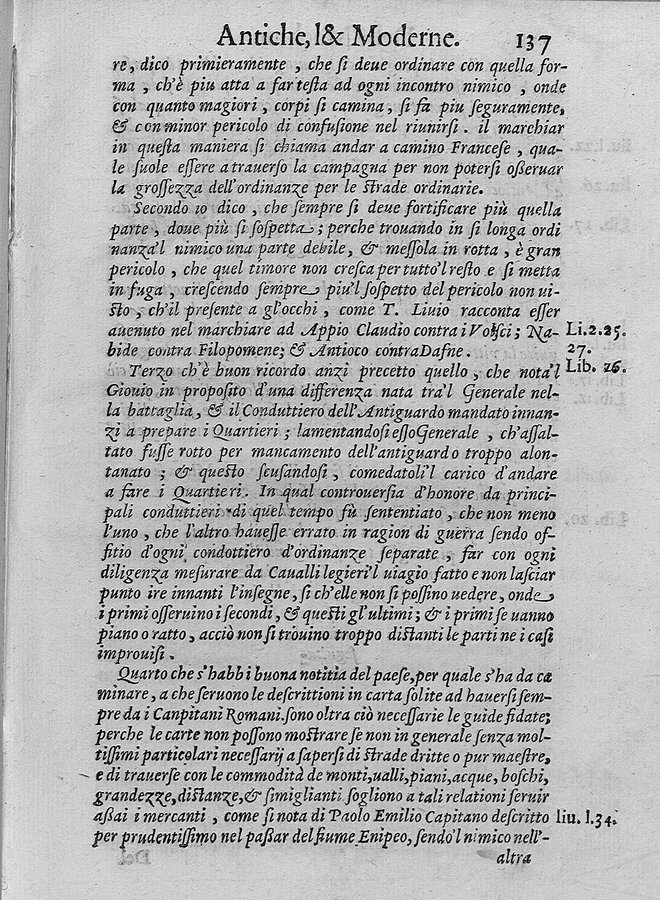 Antiche, l& Moderne. 137
re, dico primieramente , che si deue ordinare con quella for-
ma , ch'è piu atta a far testa ad ogni incontro nimico , onde
con quanto magiori , corpi si camina, si fa piu seguramente,
& con minor pericolo di confusione nel riunirsi . il marchiar
in questa maniera si chiama andar a camino Francese , qua-
le suole essere a trauerso la campagna per non potersi osseruar
la grossezza dell'ordinanze per le strade ordinarie.
Secondo io dico , che sempre si deue fortificare più quella
parte , doue più si sospetta ; perche trouando in si longa ordi
nanza'l nimico una parte debile, & messola in rotta , è gran
pericolo , che quel timore non cresca per tutto'l resto e si metta
in fuga , crescendo sempre piu'l sospetto del pericolo non ui-
sto , ch'il presente a gl'occhi , come T. Liuio racconta esser
auenuto nel marchiare ad Appio Claudio contra i Volsci ; Na- Li.2.25.
bide contra Filopomene; & Antioco cõntra Dafne. 27.
Terzo ch'è buon ricordo anzi precetto quello , che nota'l Lib. 26.
Giouio in proposito d'una differenza nata tra'l Generale nel-
la battaglia, & il Conduttiero dell'Antiguardo mandato innan-
zi a prepare i Quartieri ; lamentandosi esso Generale , ch'assal-
tato fusse rotto per mancamento dell'antiguardo troppo alon-
tanato ; & questo scusandosi , comedatoli'l carico d'andare
a fare i Quartieri . In qual controuersia d'honore da princi-
pali conduttieri di quel tempo fù sententiato , che non meno
l'uno , che l'altro hauesse errato in ragion di guerra sendo of-
fitio d'ogni condottiero d'ordinanze separate , far con ogni
diligenza mesurare da Caualli legieri'l uiagio fatto e non lasciar
punto ire innanti l'insegne, si ch'elle non si possino uedere, onde
i primi osseruino i secondi, & questi gl'ultimi ; & i primi se uanno
piano o ratto, acciò non si trouino troppo distanti le parti ne i casi
improuisi .
Quarto che s'habbi buona notitia del paese, per quale s'ha da ca
minare, a che seruono le descrittioni in carta solite ad hauersi sem-
pre da i Canpitani Romani. sono oltra ciò necessarie le guide fidate;
perche le carte non possono mostrare se non in generale senza mol-
tissimi particolari necessarij a sapersi di strade dritte o pur maestre,
e di trauerse con le commodità de monti, ualli, piani, acque, boschi,
grandezze, distanze, & simiglianti sogliono a tali relationi seruir
assai i mercanti , come si nota di Paolo Emilio Capitano descritto liu. l.34.
per prudentissimo nel passar del fiume Enipeo, sendo'l nimico nell'-
altra